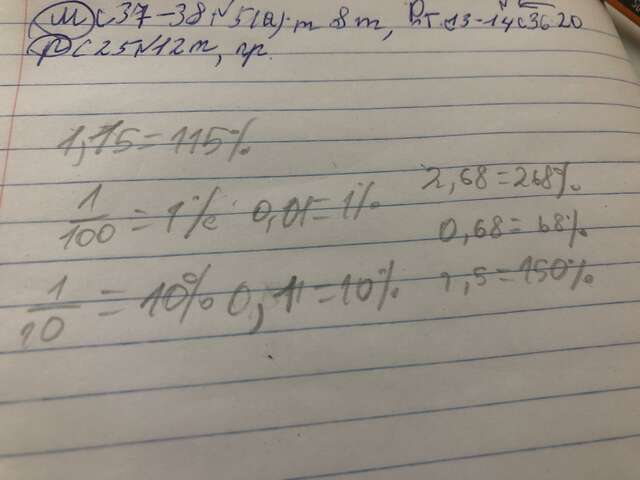 М с 37-38, №5(а) т 8т, РТ с 13-14 с 36 20
Р с 25 №12 т, пр.
1,15=115%
1/100 = 1% 0,01=1%
2,68=268%
0,68=68%
1/10 = 10% 0,1=10%
1,5=150%